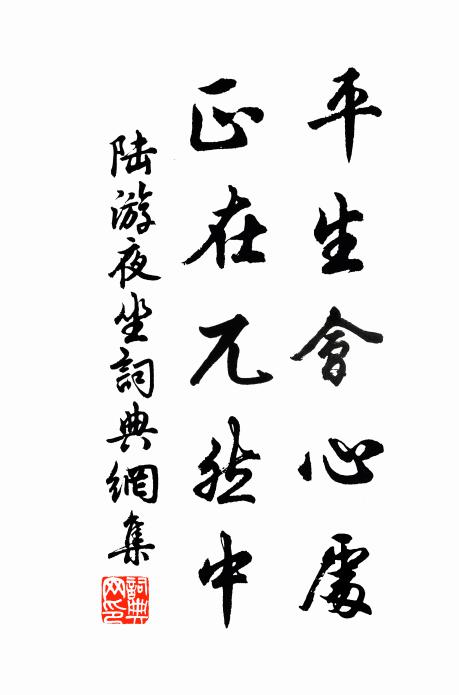 平生會心處
正在兀然中
陸游夜坐詞典網集
詞典网印